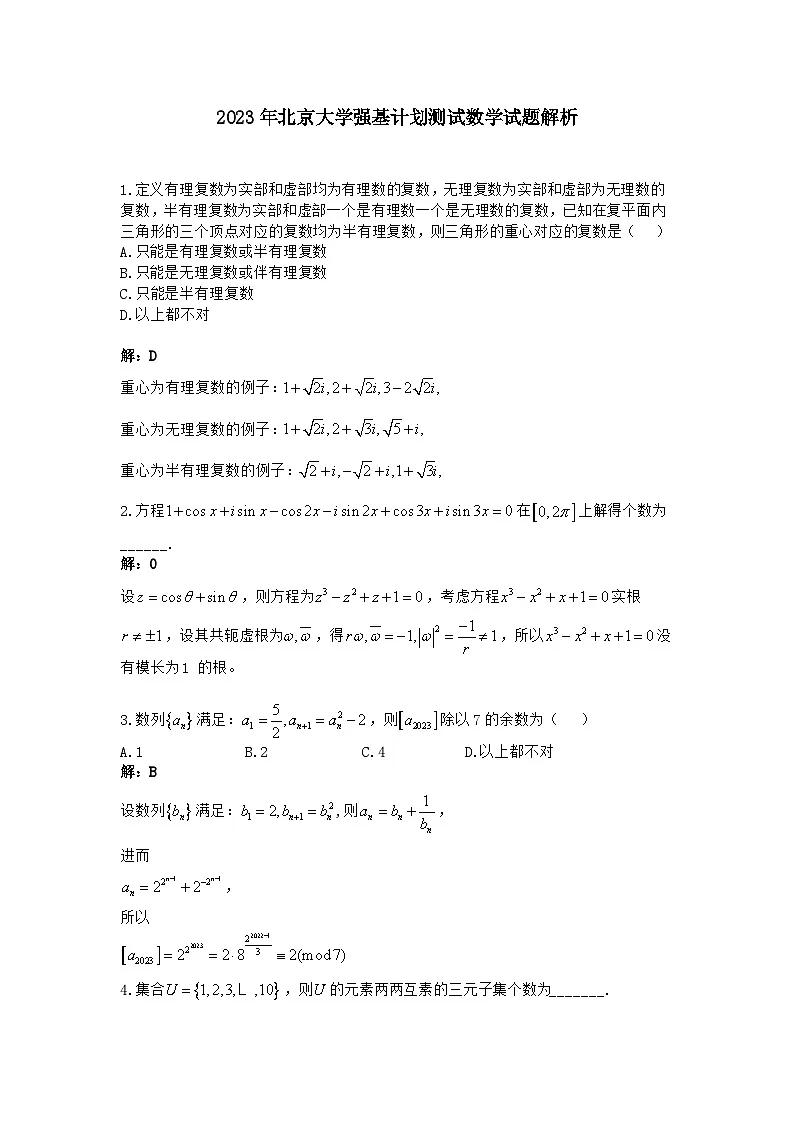 2023 年北京大学强基计划测试数学试题解析
1.定义有理复数为实部和虚部均为有理数的复数,无理复数为实部和虚部为无理数的
复数,半有理复数为实部和虚部一个是有理数一个是无理数的复数,已知在复平面内
三角形的三个顶点对应的复数均为半有理复数,则三角形的重心对应的复数是( )
A.只能是有理复数或半有理复数
B.只能是无理复数或伴有理复数
C.只能是半有理复数
D.以上都不对
解:D
重心为有理复数的例子:1+√2i,2+√2i,3−2√2i,
重心为无理复数的例子:1+√2i,2+√3i,√5+i,
重心为半有理复数的例子:√2+i,−√2+i,1+√3i,
2.方程1+cos x+i sin x−cos 2x−i sin 2x+cos 3x+i sin 3x=0在[0,2π]上解得个数为
______.
解:0
设z=cosθ+sinθ,则方程为z³−z²+z+1=0,考虑方程x³−x²+x+1=0实根
r≠±1,设其共轭虚根为ω,ω̅,得rω,ω̅=−1,|ω|²=−1/r≠1,所以x³−x²+x+1=0没
有模长为1 的根。
3.数列{aₙ}满足:a₁=5/2,aₙ₊₁=aₙ²−2,则[a₂₀₂₃]除以7的余数为( )
A.1 B.2 C.4 D.以上都不对
解:B
设数列{bₙ}满足:b₁=2,bₙ₊₁=bₙ²,则aₙ=bₙ+1/bₙ,
进而
aₙ=2^(2^(n−1))+2^(−2^(n−1)),
所以
[a₂₀₂₃]=2^(2^2023)=2·8^((2^(2022−1))/3)≡2(mod7)
4.集合U={1,2,3,L ,10},则U的元素两两互素的三元子集个数为_______.